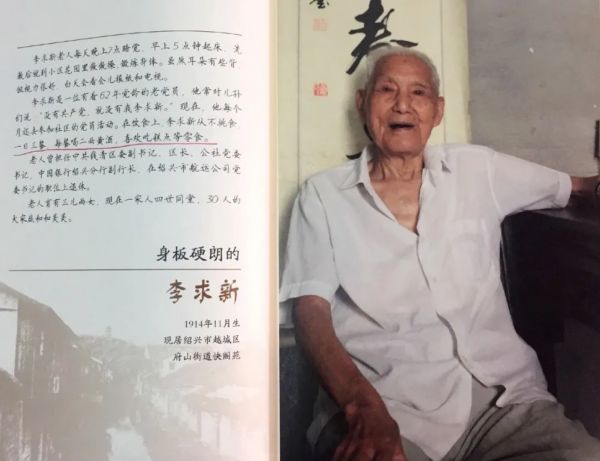 李求新老人每天晚上7点睡觉，早上5点钟起床，洗
漱后就到小区花园里做做操、锻炼身体。虽然耳朵有些背，
但视力很好，白天会看会儿报纸和电视。
李求新是一位有着62年党龄的老党员，他常对儿孙
们说："没有共产党，就没有我李求新。"现在，他每个
月还去参加社区的党员活动。在饮食上，李求新从不挑食，
一日三餐，每餐喝二两黄酒，喜欢吃糕点等零食。
老人曾担任中共钱清区委副书记、区长、公社党委
书记，中国银行绍兴分行副行长，在绍兴市航运公司党
委书记的职位上退休。
老人育有三儿两女，现在一家人四世同堂，30人的
大家庭和和美美。
身板硬朗的
李求新
1914年11月生
现居绍兴市越城区
府山街道快阁苑